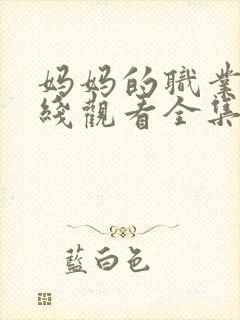 妈妈的職業
綫觀看全集
藍白色